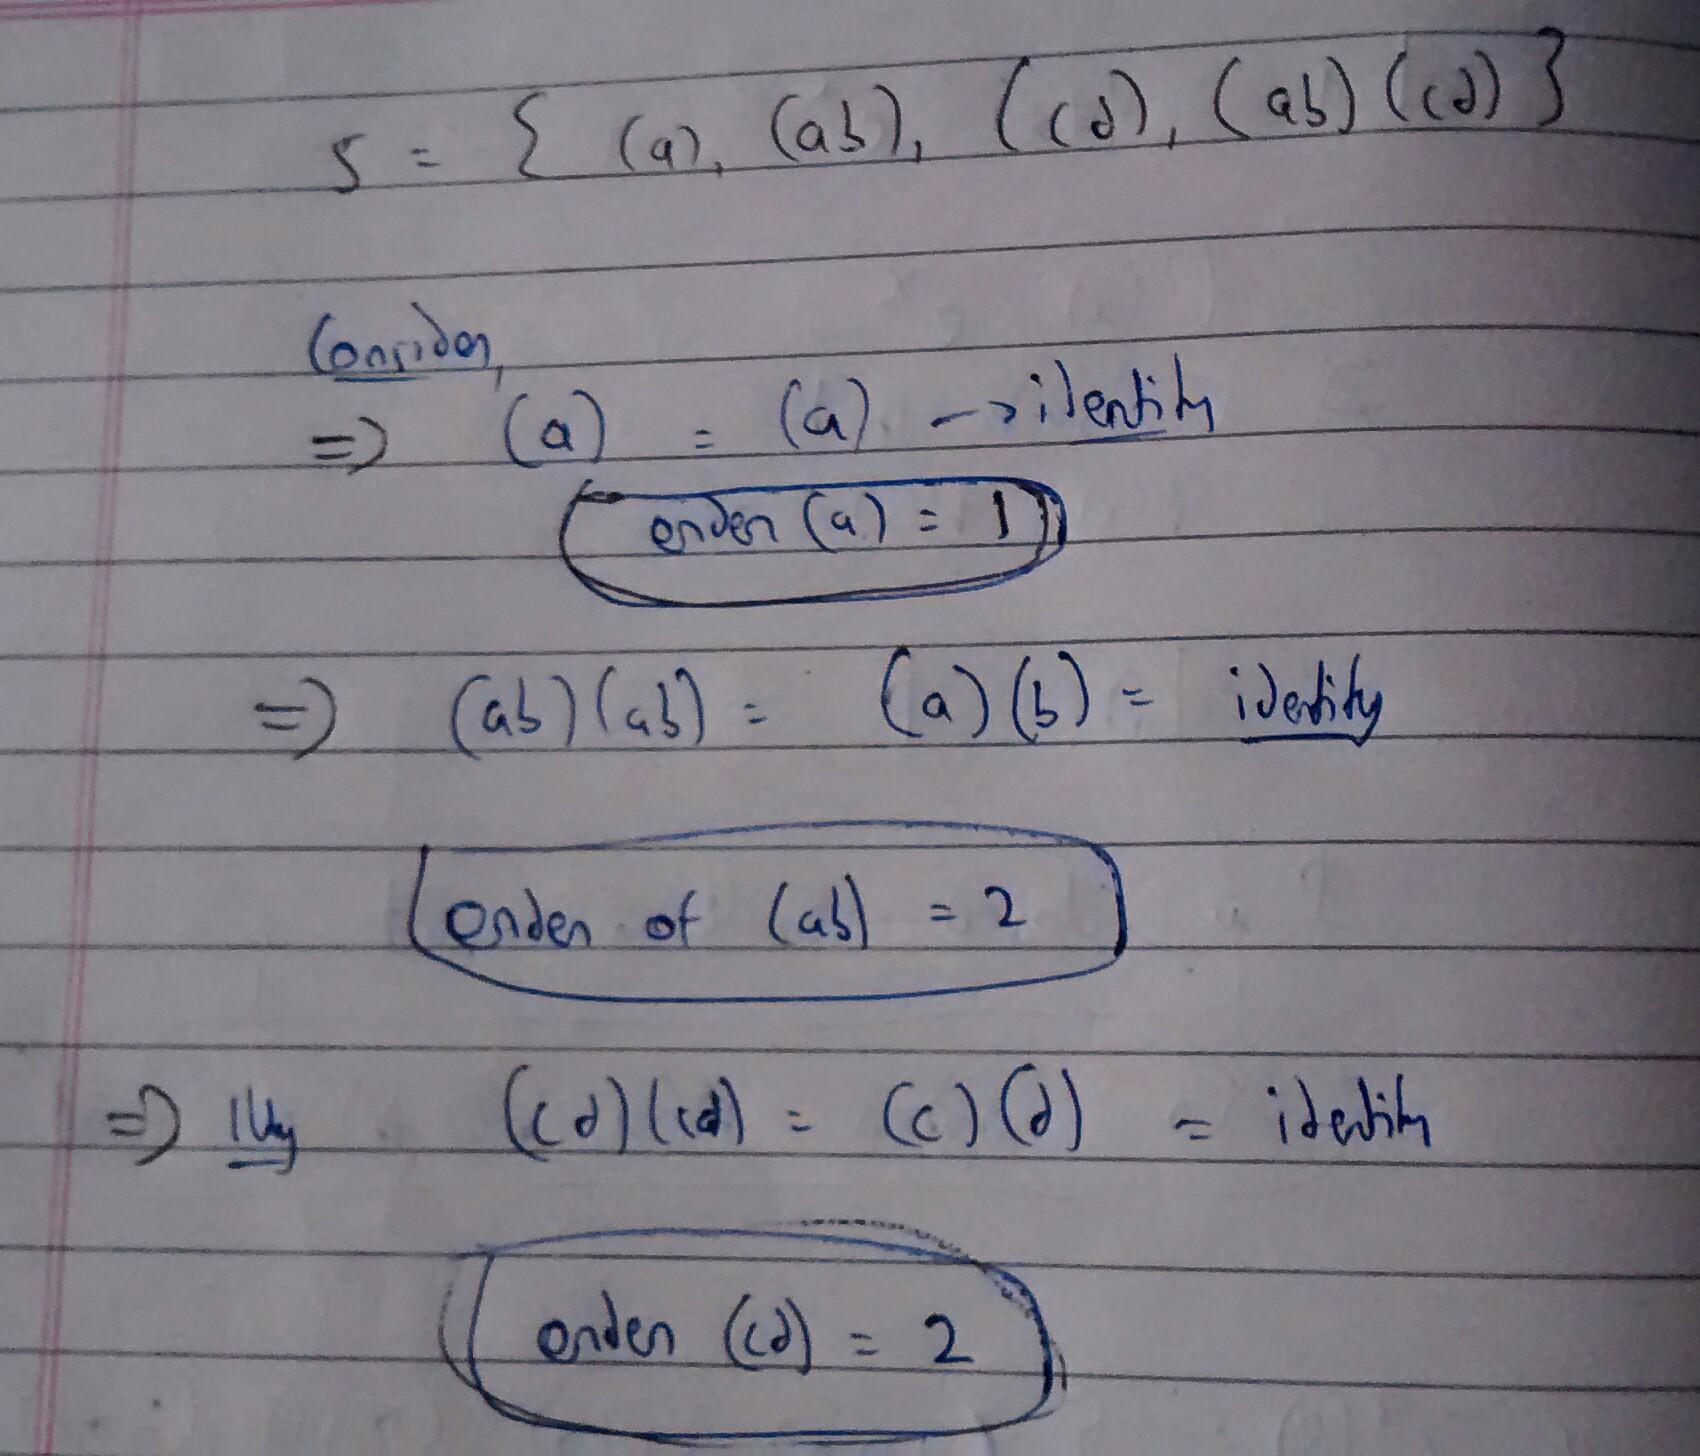 S = { (a), (ab), (cd), (ab)(cd) }
Consider,
=> (a) = (a) -> identity
order (a) = 1
=> (ab)(ab) = (a)(b) = identity
order of (ab) = 2
=> Illy (cd)(cd) = (c)(d) = identity
order (cd) = 2